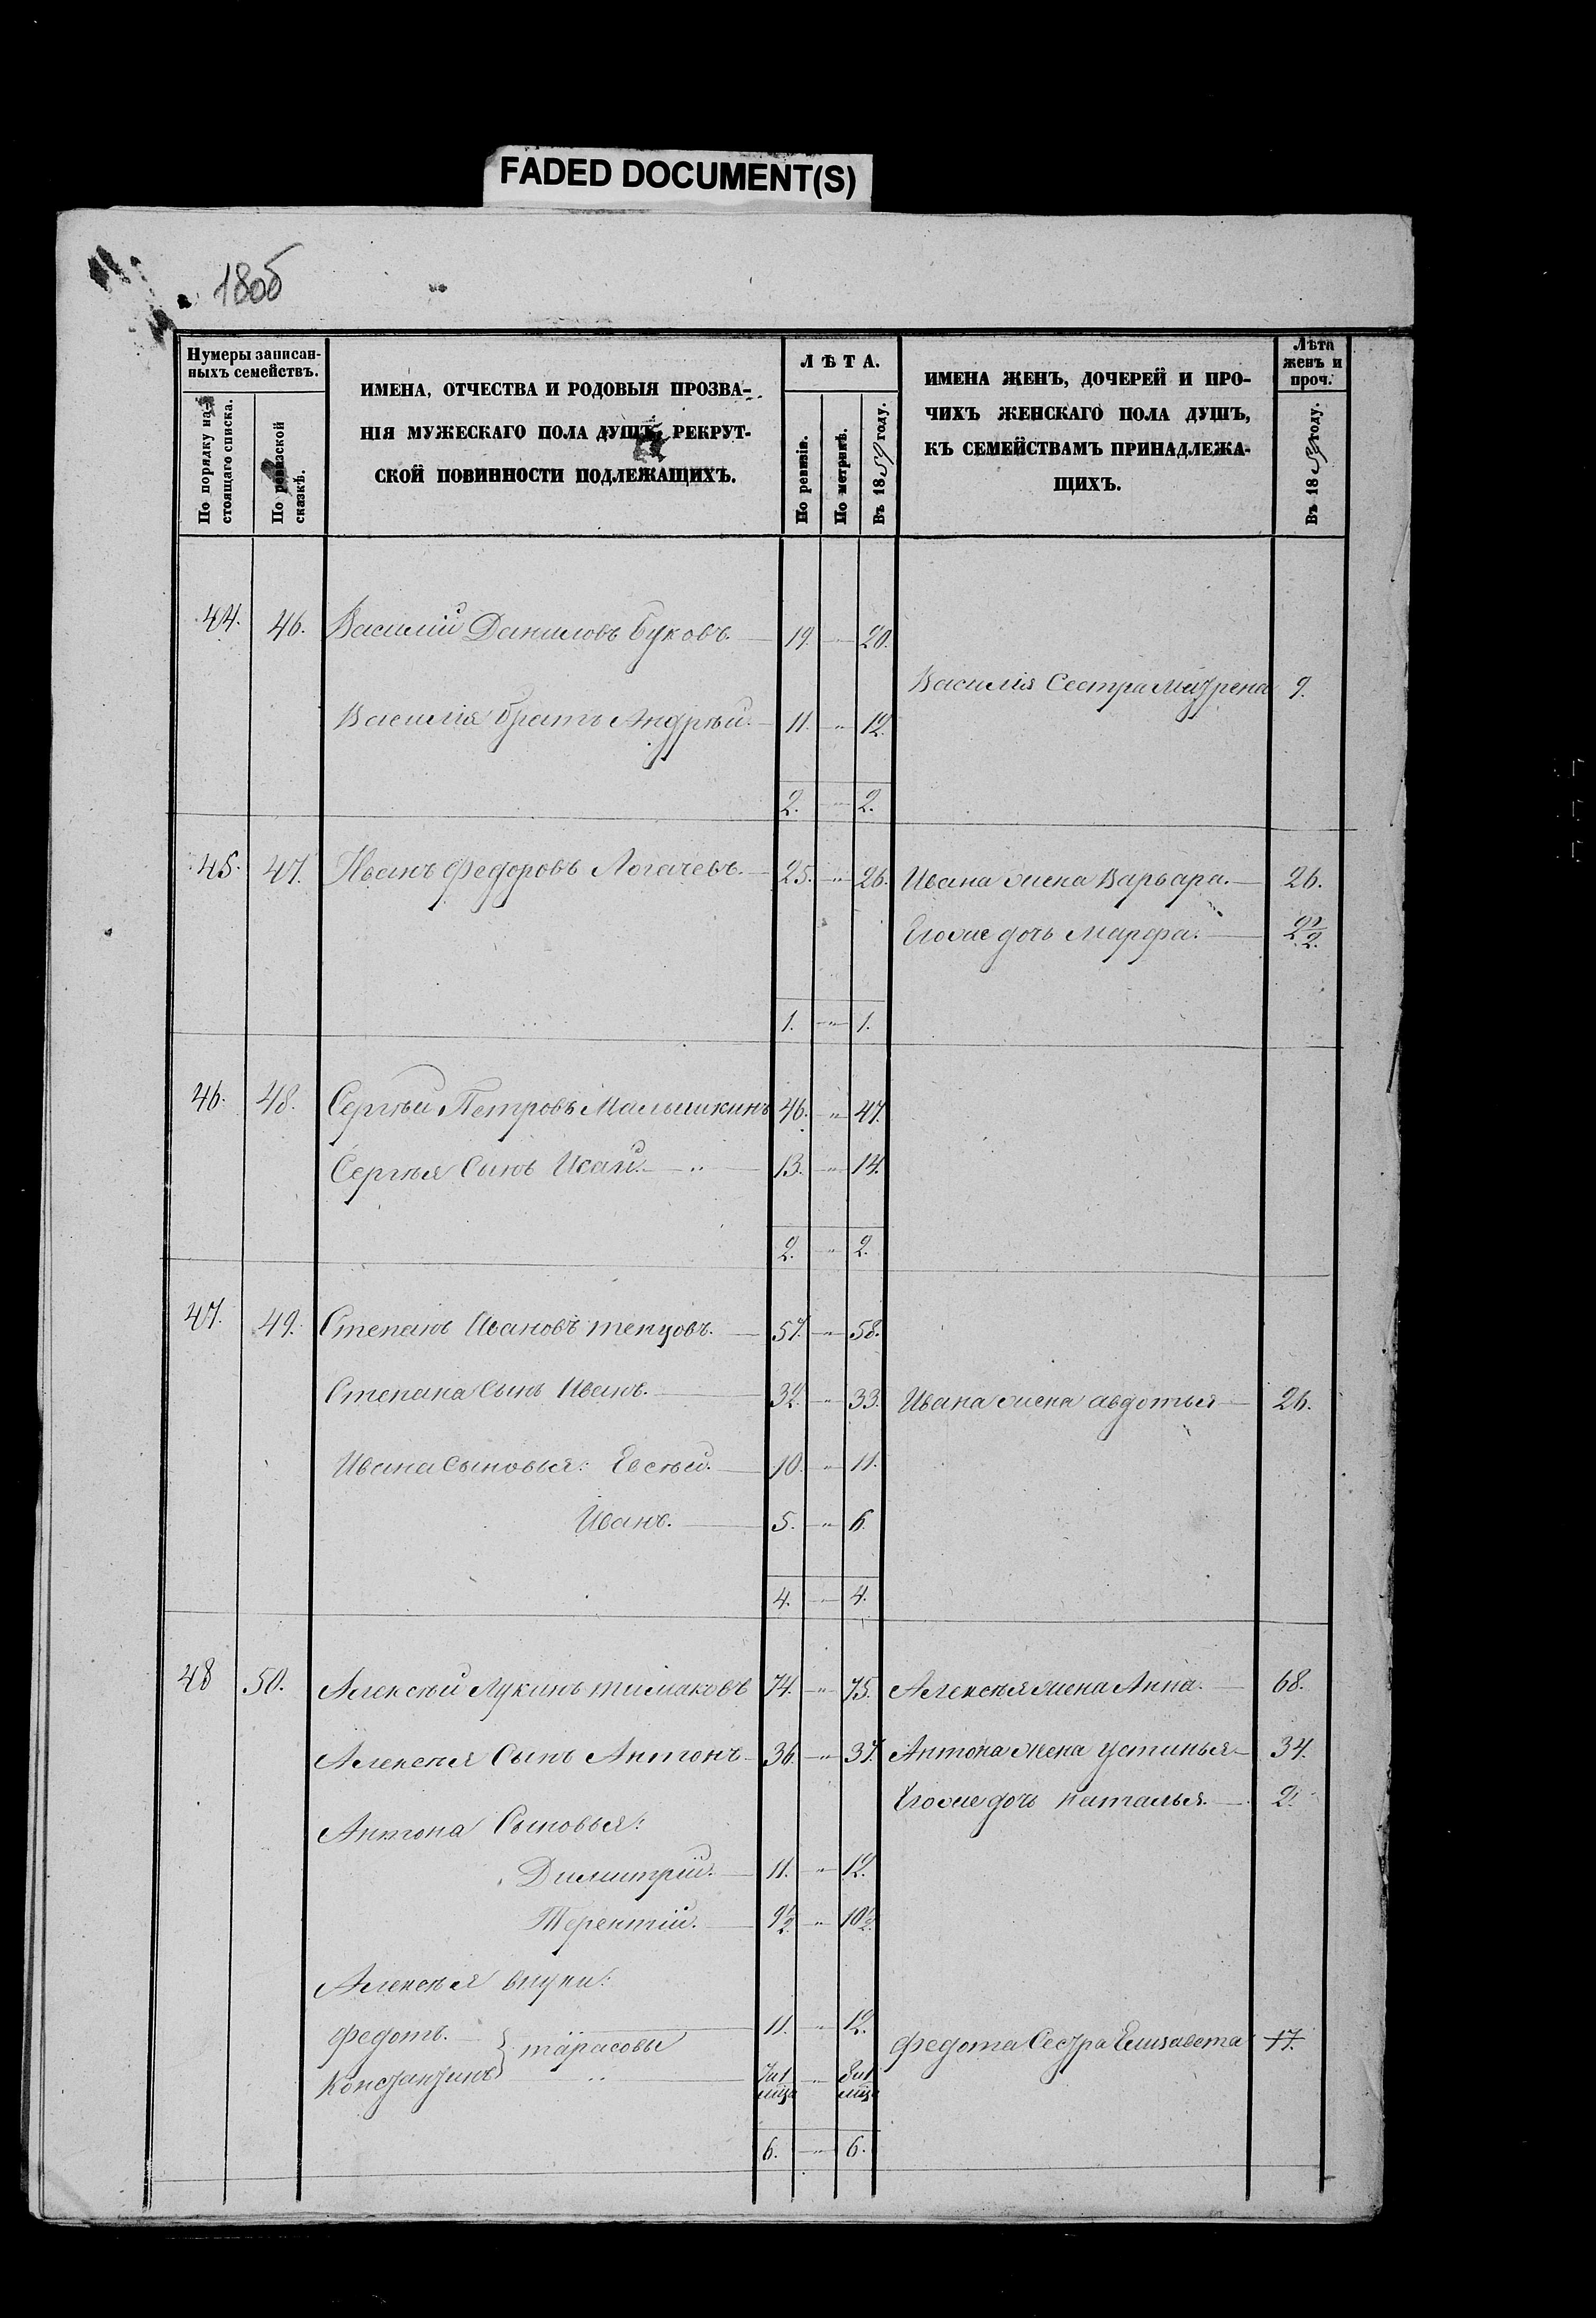 FADED DOCUMENT(S)
180б
Нумеры записан-
ныхъ семействъ.
По порядку на-
стоящаго списка.
По ревизской
сказкѣ.
ИМЕНА, ОТЧЕСТВА И РОДОВЫЯ ПРОЗВА-
НІЯ МУЖЕСКАГО ПОЛА ДУШЪ, РЕКРУТ-
СКОЙ ПОВИННОСТИ ПОДЛЕЖАЩИХЪ.
ЛѢТА.
По ревизіи.
По метрикѣ.
Въ 1859 году.
ИМЕНА ЖЕНЪ, ДОЧЕРЕЙ И ПРО-
ЧИХЪ ЖЕНСКАГО ПОЛА ДУШЪ,
КЪ СЕМЕЙСТВАМЪ ПРИНАДЛЕЖА-
ЩИХЪ.
Лѣта
женъ и
проч.
Въ 1859 году.
44. 46. Василій Даниловъ Буковъ. — 19. — 20.
Василія Сестра Матрена 9.
Василія братъ Андрѣй. — 11. — " — 12.
2. — " — 2.
45. 47. Иванъ Федоровъ Логачевъ. — 25. — " — 26. Ивана жена Варвара. — 26.
Егоже дочь Марфа. —
1. — " — 1.
46. 48. Сергѣй Петровъ Малышкинъ 46. — " — 47.
Сергѣя Сынъ Исай. — " — 13. — " — 14.
2. — " — 2.
47. 49. Степанъ Ивановъ — 57. — " — 58.
Степана Сынъ Иванъ. — 32. — " — 33. Ивана жена авдотья — 26.
Ивана сыновья: Евсѣй. — 10. — " — 11.
Иванъ. — 5. — " — 6.
4. — " — 4.
48 50. Алексѣй Лукинъ 74. — " — 75. Алексѣя жена Анна. — 68.
Алексѣя Сынъ Антонъ — 36. — " — 37. Антона жена устинья — 34.
Егоже дочь наталья. — 2.
Антона Сыновья:
Димитрій. — 11. — " — 12.
Терентій. — 9½ — " — 10½
Алексѣя внуки:
Федотъ. — } тарасовы 11. — " — 12. Федота Сестра Елизавета 17.
Константинъ } — " —
6. — " — 6.